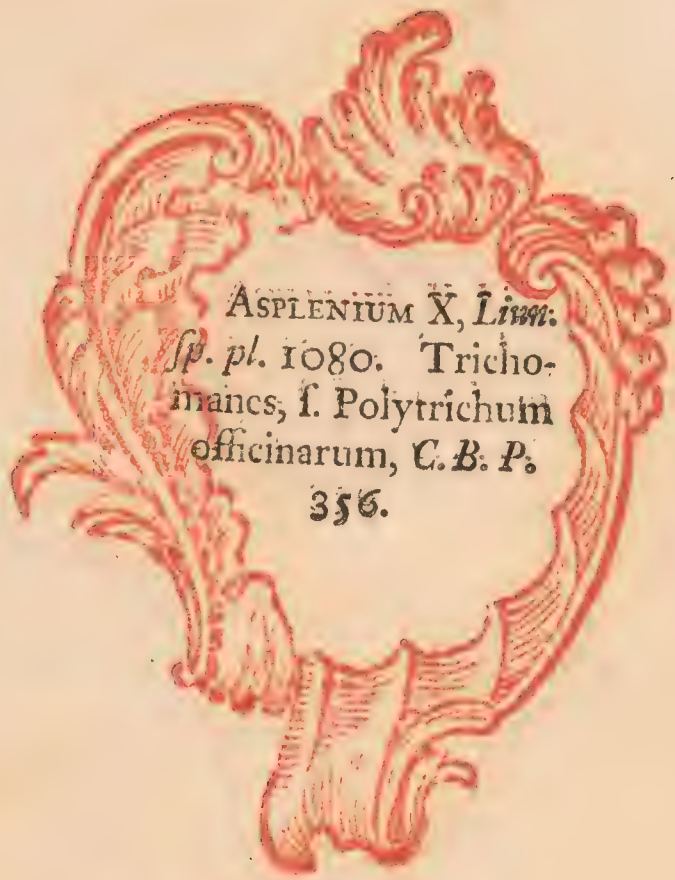 ASPLENIUM X, Linn:
ſp. pl. 1080. Tricho-
manes, ſ. Polytrichum
officinarum, C. B. P.
356.